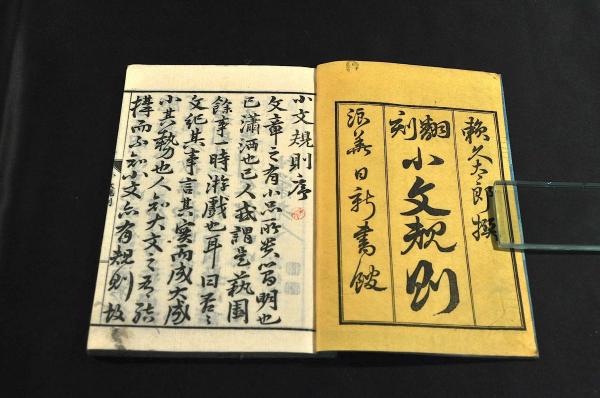 賴久太郎撰
翻刻
小文規則
浪華日新書館
小文規則序
文章之有小品所貴簡明也
已瀟洒也已人或謂是藝園
餘事一時游戲也耳曰否々
文紀其事言其實而成大成
小其勢也人知大文之有結
構而不知小文亦有規則故